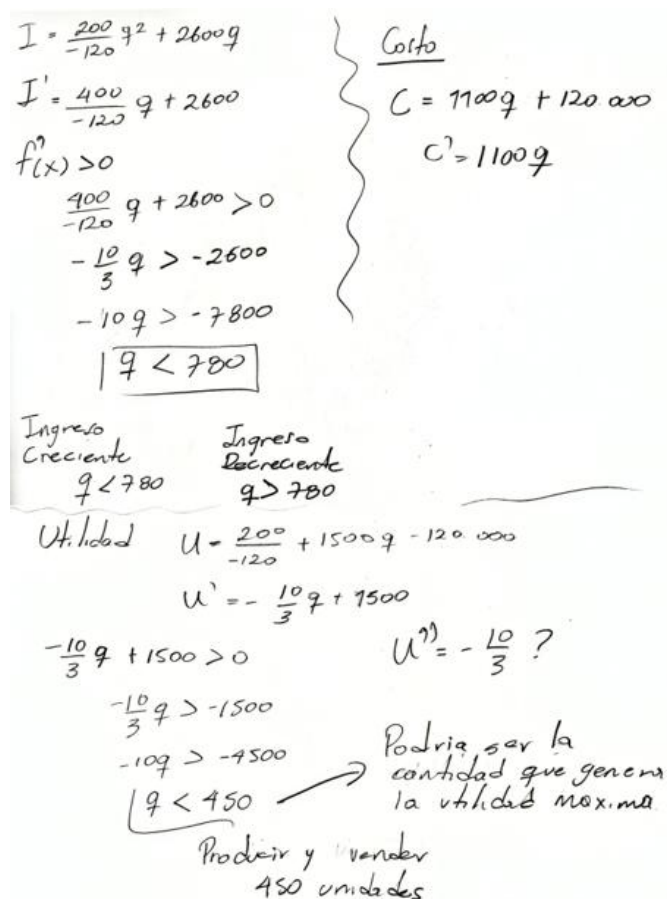 I = 200/-120 q² + 2600q
I' = 400/-120 q + 2600
f'(x) > 0
400/-120 q + 2600 > 0
-10/3 q > -2600
-10q > -7800
q < 780
Costo
C = 1100q + 120.000
C' = 1100q
Ingreso
Creciente
q < 780
Ingreso
Decreciente
q > 780
Utilidad U = 200/-120 + 1500q - 120.000
U' = -10/3 q + 1500
-10/3 q + 1500 > 0
-10/3 q > -1500
-10q > -4500
q < 450
U'' = -10/3 ?
Podria ser la
cantidad que genera
la utilidad maxima
Producir y vender
450 unidades